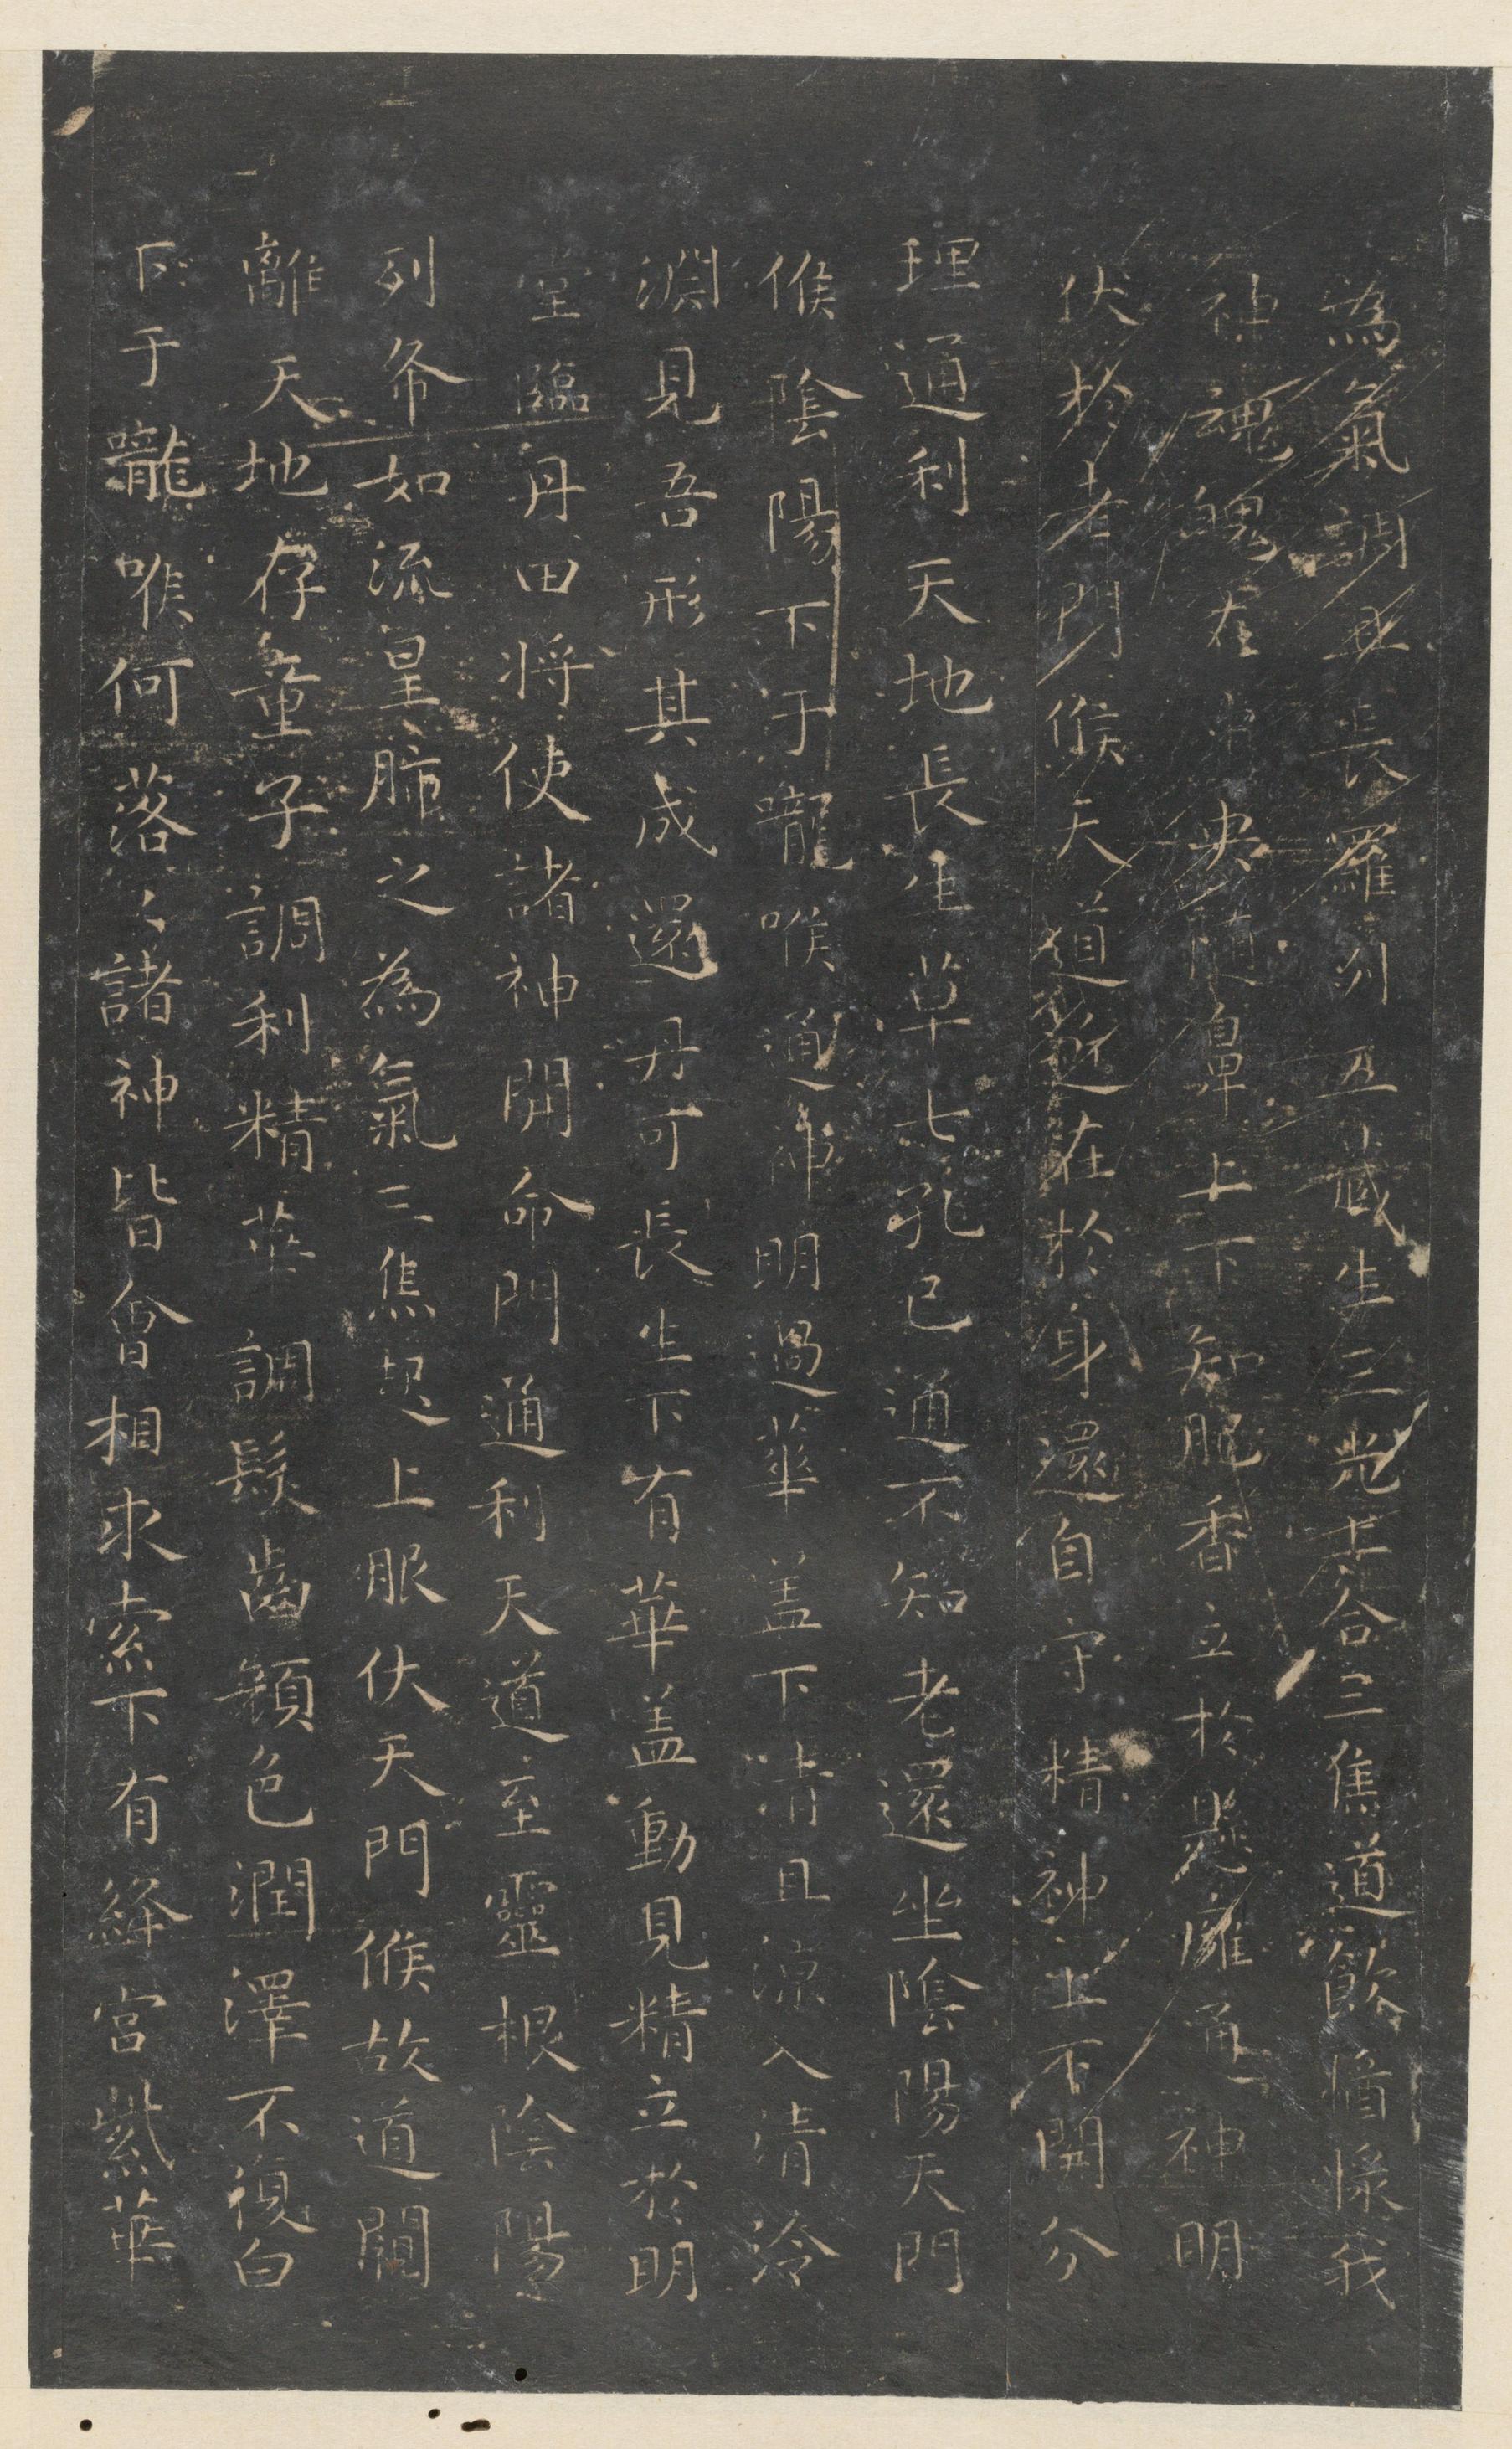 為氣調五長羅列五藏生三光上合三焦道飲醬漿我
神魂魄在中央隨鼻上下知肥香立於懸廱通神明
伏於老門候天道近在於身還自守精神上下開分
理通利天地長生草七孔已通不知老還坐陰陽天門
候陰陽下于嚨喉通神明過華盖下清且涼入清泠
淵見吾形其成還丹可長生下有華盖動見精立於明
堂臨丹田將使諸神開命門通利天道至靈根陰陽
列布如流皇肺之為氣三焦起上服伏天門候故道闚
離天地存童子調利精華調髮齒顏色潤澤不復白
下于嚨喉何落々諸神皆會相求索下有絳宮紫華